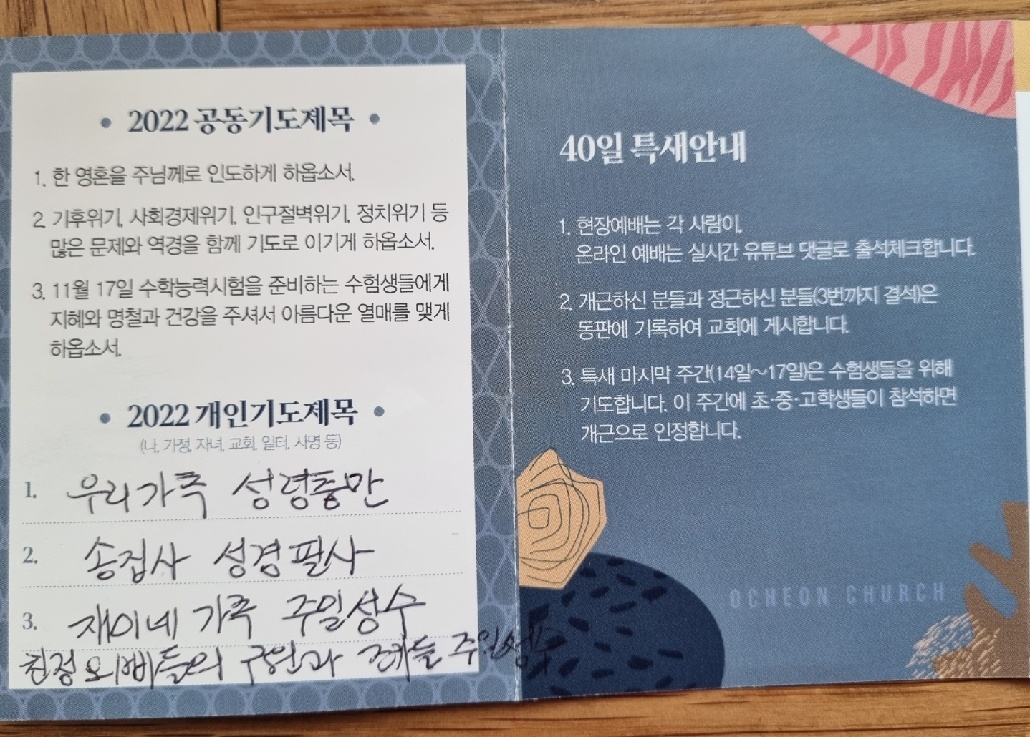 • 2022 공동기도제목 •
1. 한 영혼을 주님께로 인도하게 하옵소서.
2. 기후위기, 사회경제위기, 인구절벽위기, 정치위기 등
많은 문제와 역경을 함께 기도로 이기게 하옵소서.
3. 11월 17일 수학능력시험을 준비하는 수험생들에게
지혜와 명철과 건강을 주셔서 아름다운 열매를 맺게
하옵소서.
• 2022 개인기도제목 •
(나, 가정, 자녀, 교회, 일터, 사명 등)
1. 우리가족 성령충만
2. 송집사 성경필사
3. 재이네 가족 주일성수
친정오빠들의 구원과 조카들 주일성수
40일 특새안내
1. 현장예배는 각 사람이,
온라인 예배는 실시간 유튜브 댓글로 출석체크합니다.
2. 개근하신 분들과 정근하신 분들(3번까지 결석)은
동판에 기록하여 교회에 게시합니다.
3. 특새 마지막 주간(14일~17일)은 수험생들을 위해
기도합니다. 이 주간에 초·중·고학생들이 참석하면
개근으로 인정합니다.
OCHEON CHURCH